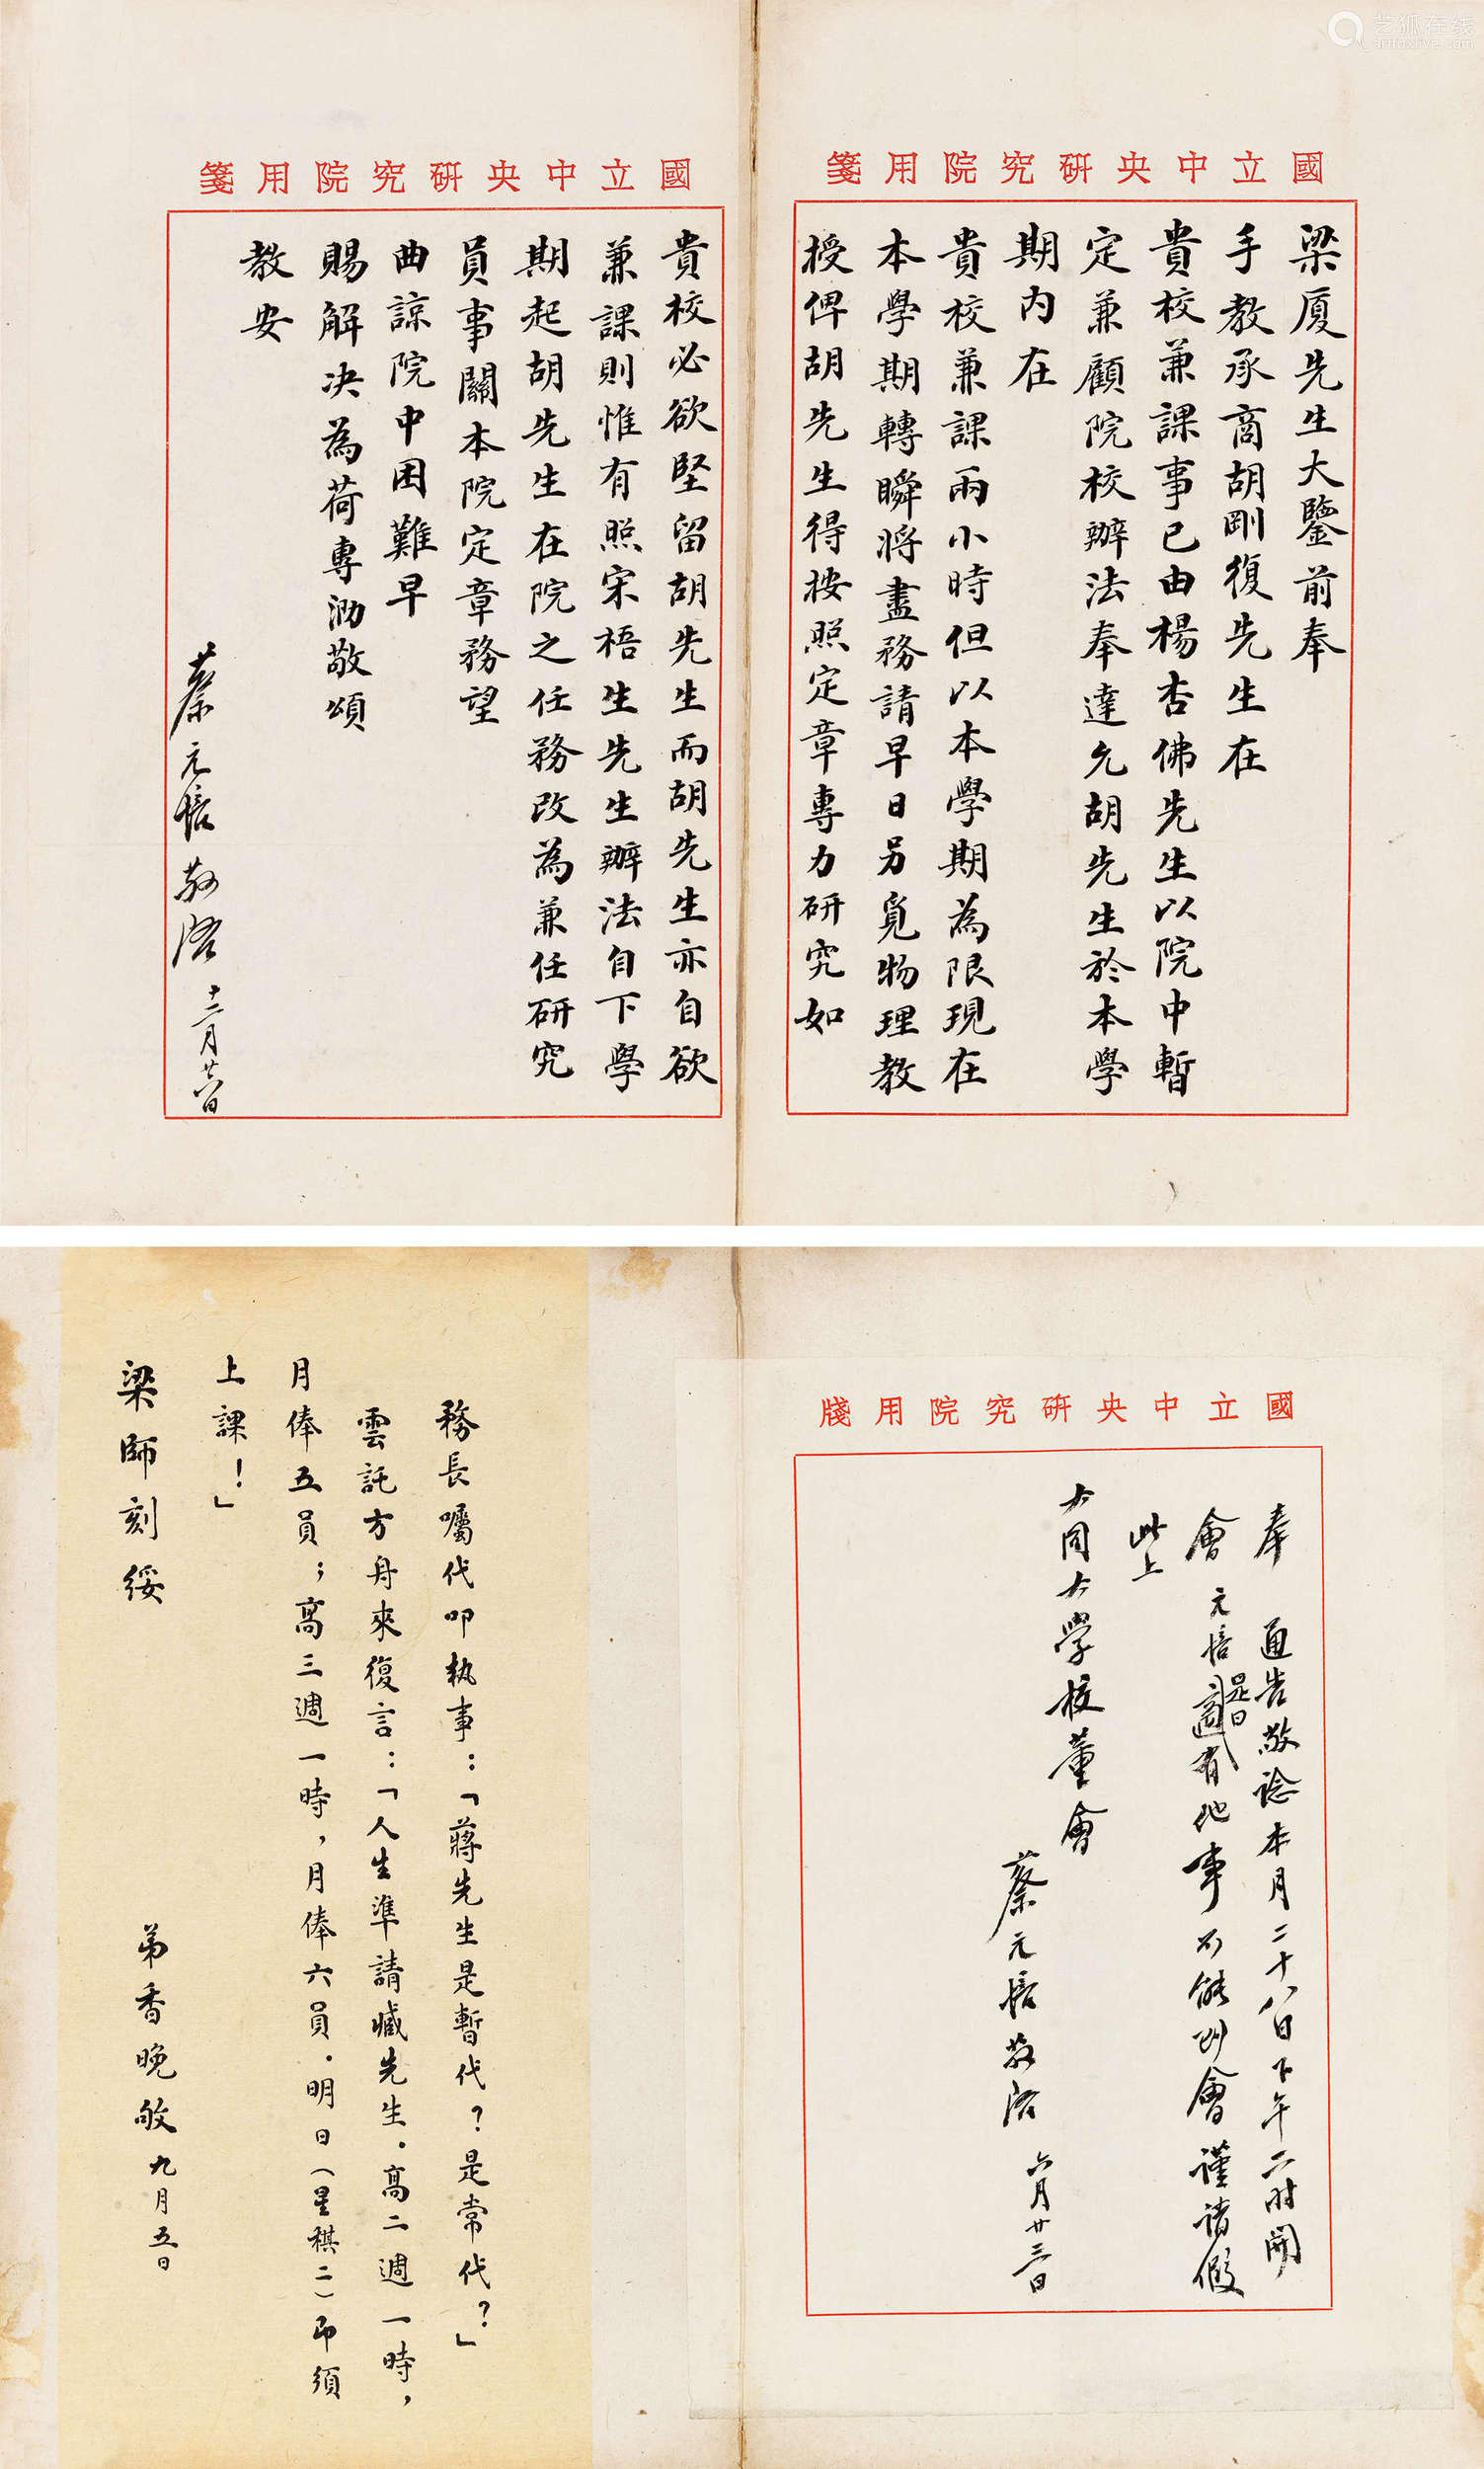 艺狐在线
artfoxlive.com
國立中央研究院用箋
梁厦先生大鑒前奉
手教承商胡剛復先生在
貴校兼課事已由楊杏佛先生以院中暫
定兼顧院校辦法奉達允胡先生於本學
期内在
貴校兼課兩小時但以本學期為限現在
本學期轉瞬將盡務請早日另覓物理教
授俾胡先生得按照定章專力研究如
國立中央研究院用箋
貴校必欲堅留胡先生而胡先生亦自欲
兼課則惟有照宋梧生先生辦法自下學
期起胡先生在院之任務改為兼任研究
員事關本院定章務望
曲諒院中困難早
賜解决為荷專泐敬頌
教安
蔡元培敬啓 十二月廿六日
國立中央研究院用牋
奉 通告敬諗本月二十八日下午二時開
會元培是日適有他事不能到會謹請假
此上
大同大學校董會
蔡元培敬啓 六月廿三日
務長囑代叩執事：「蔣先生是暫代？是常代？」
雲託方舟來復言：「人生準請臧先生．高二週一時，
月俸五員；高三週一時，月俸六員．明日（星稘二）即須
上課！」
梁師刻綏
弟香晚敬 九月五日